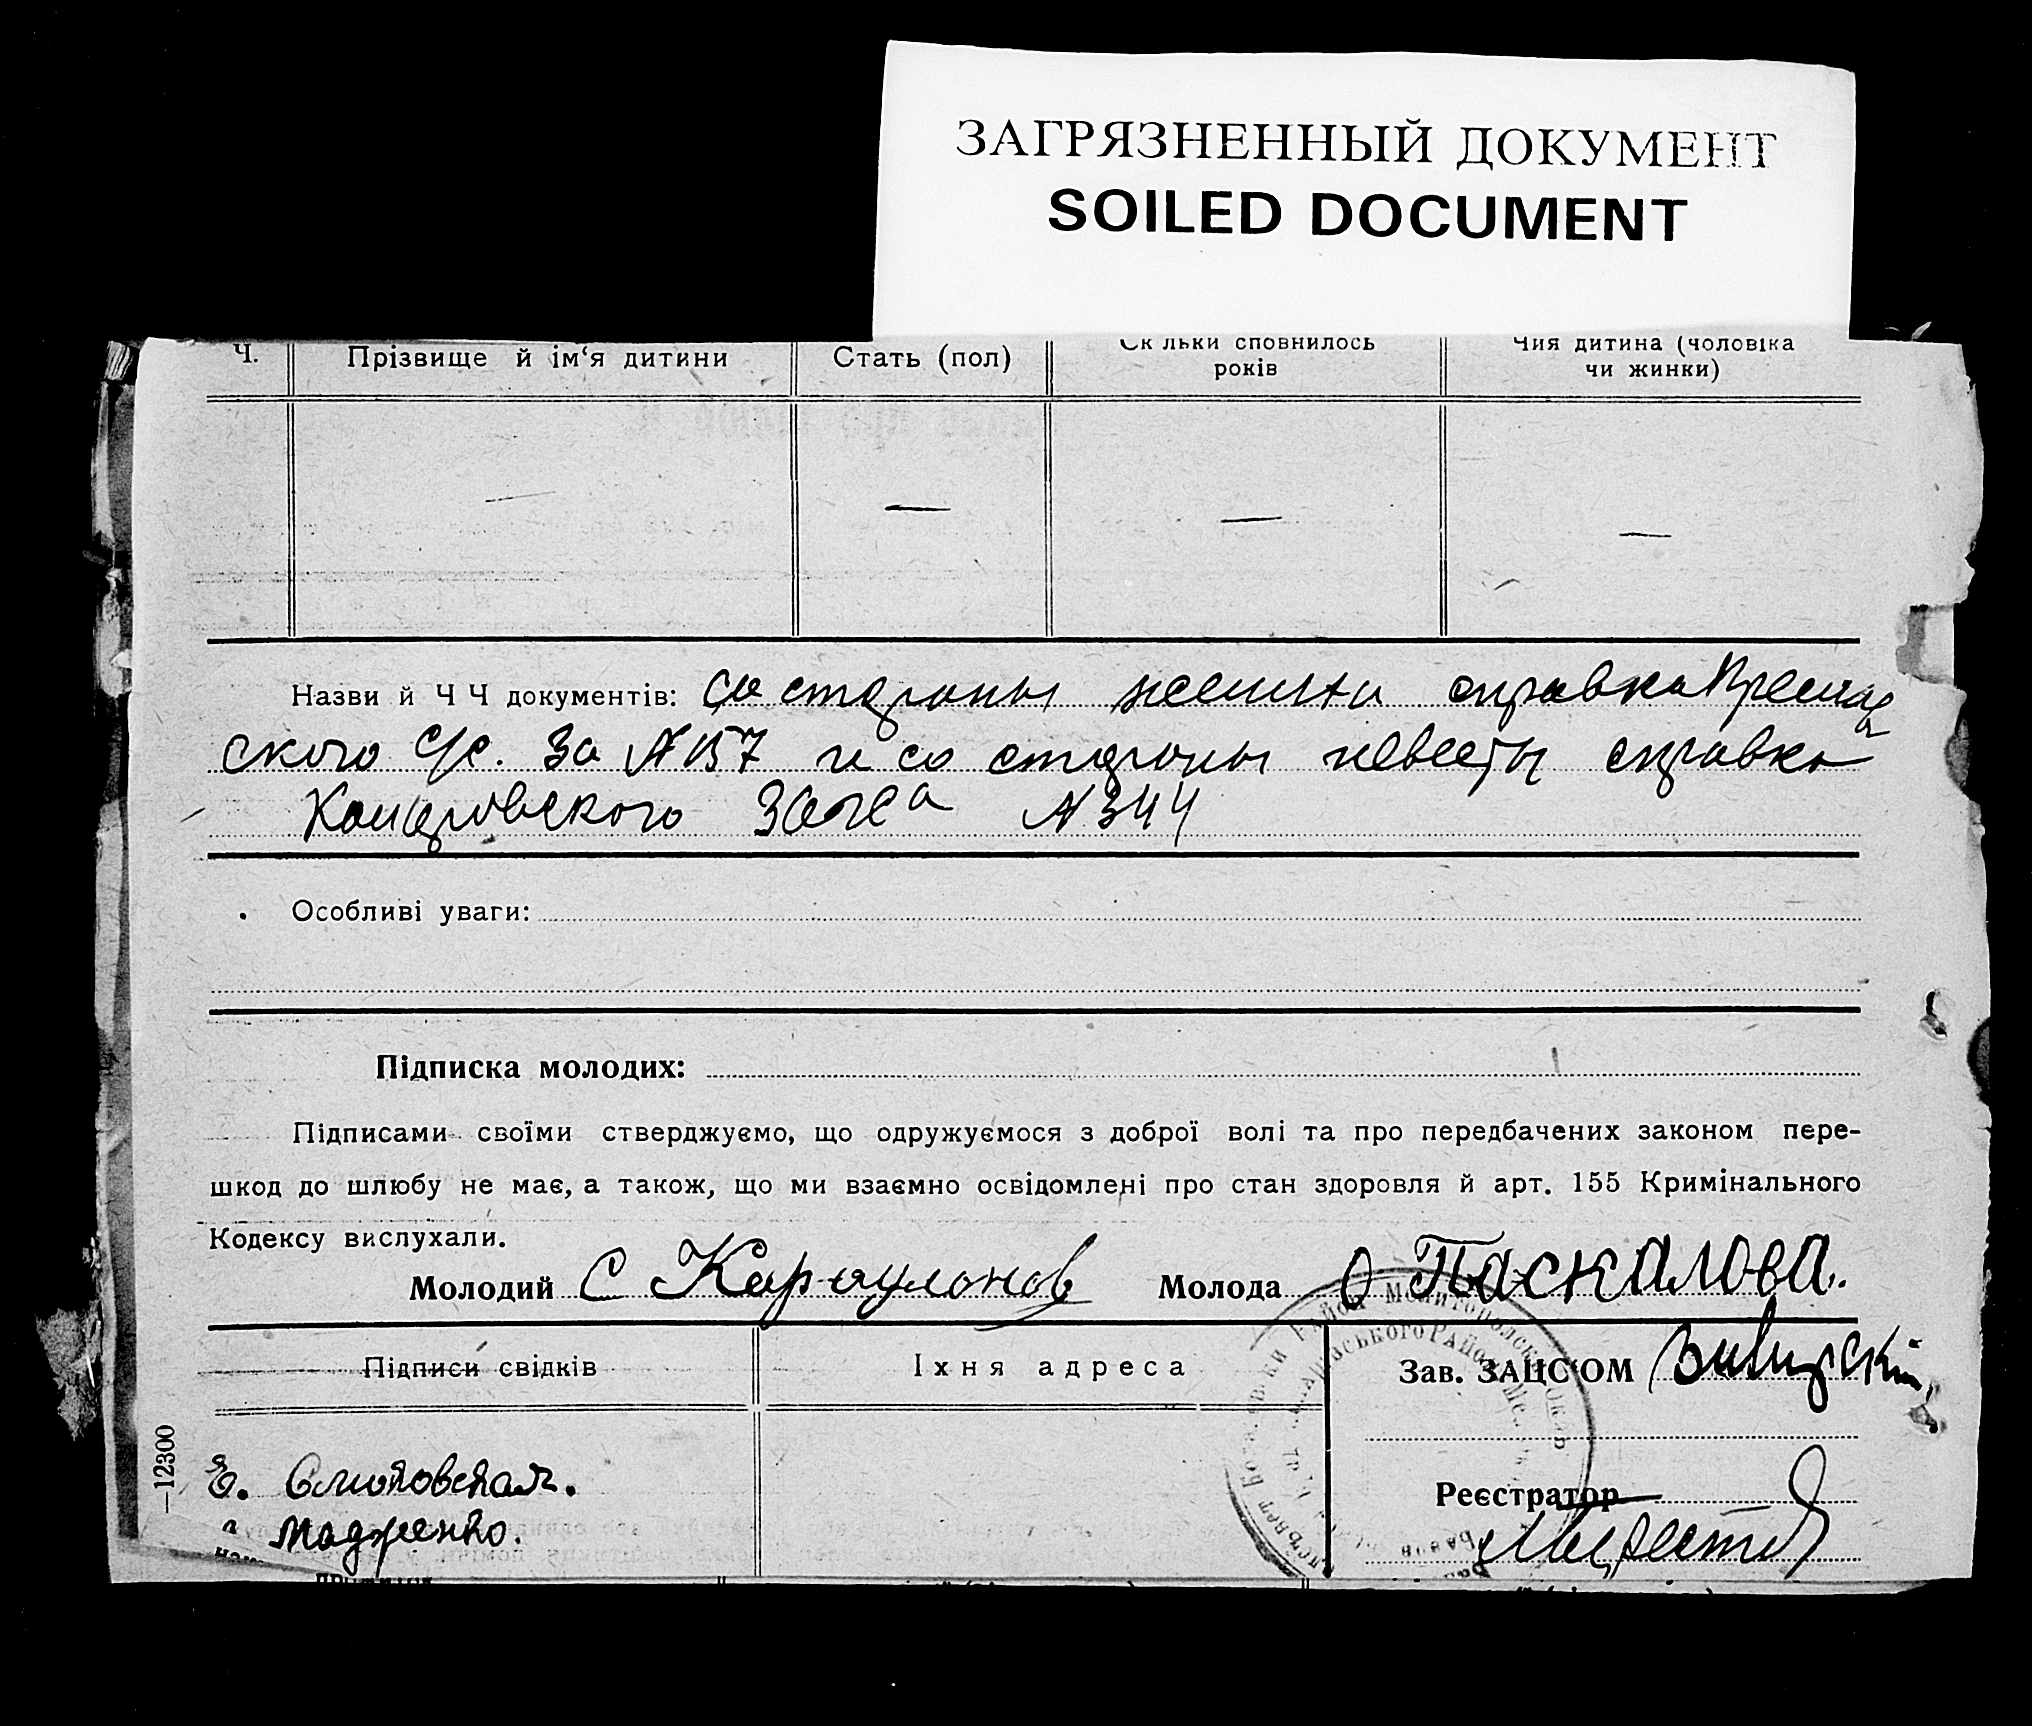 ЗАГРЯЗНЕННЫЙ ДОКУМЕНТ
SOILED DOCUMENT
Ч. Прізвище й ім‘я дитини Стать (пол) Ск льки сповнилось років Чия дитина (чоловіка чи жинки)
— — — —
Назви й Ч Ч документів: Со стороны жениха справка
ского с/с. за №157 и со стороны невесты справка
Загса №344
Особливі уваги:
Підписка молодих:
Підписами своїми стверджуємо, що одружуємося з доброї волі та про передбачених законом пере-
шкод до шлюбу не має, а також, що ми взаємно освідомлені про стан здоровля й арт. 155 Кримінального
Кодексу вислухали.
Молодий С Караулонов Молода О Паскалова.
Підписи свідків Іхня адреса Зав. ЗАЦС‘ОМ
Реєстратор
—12300